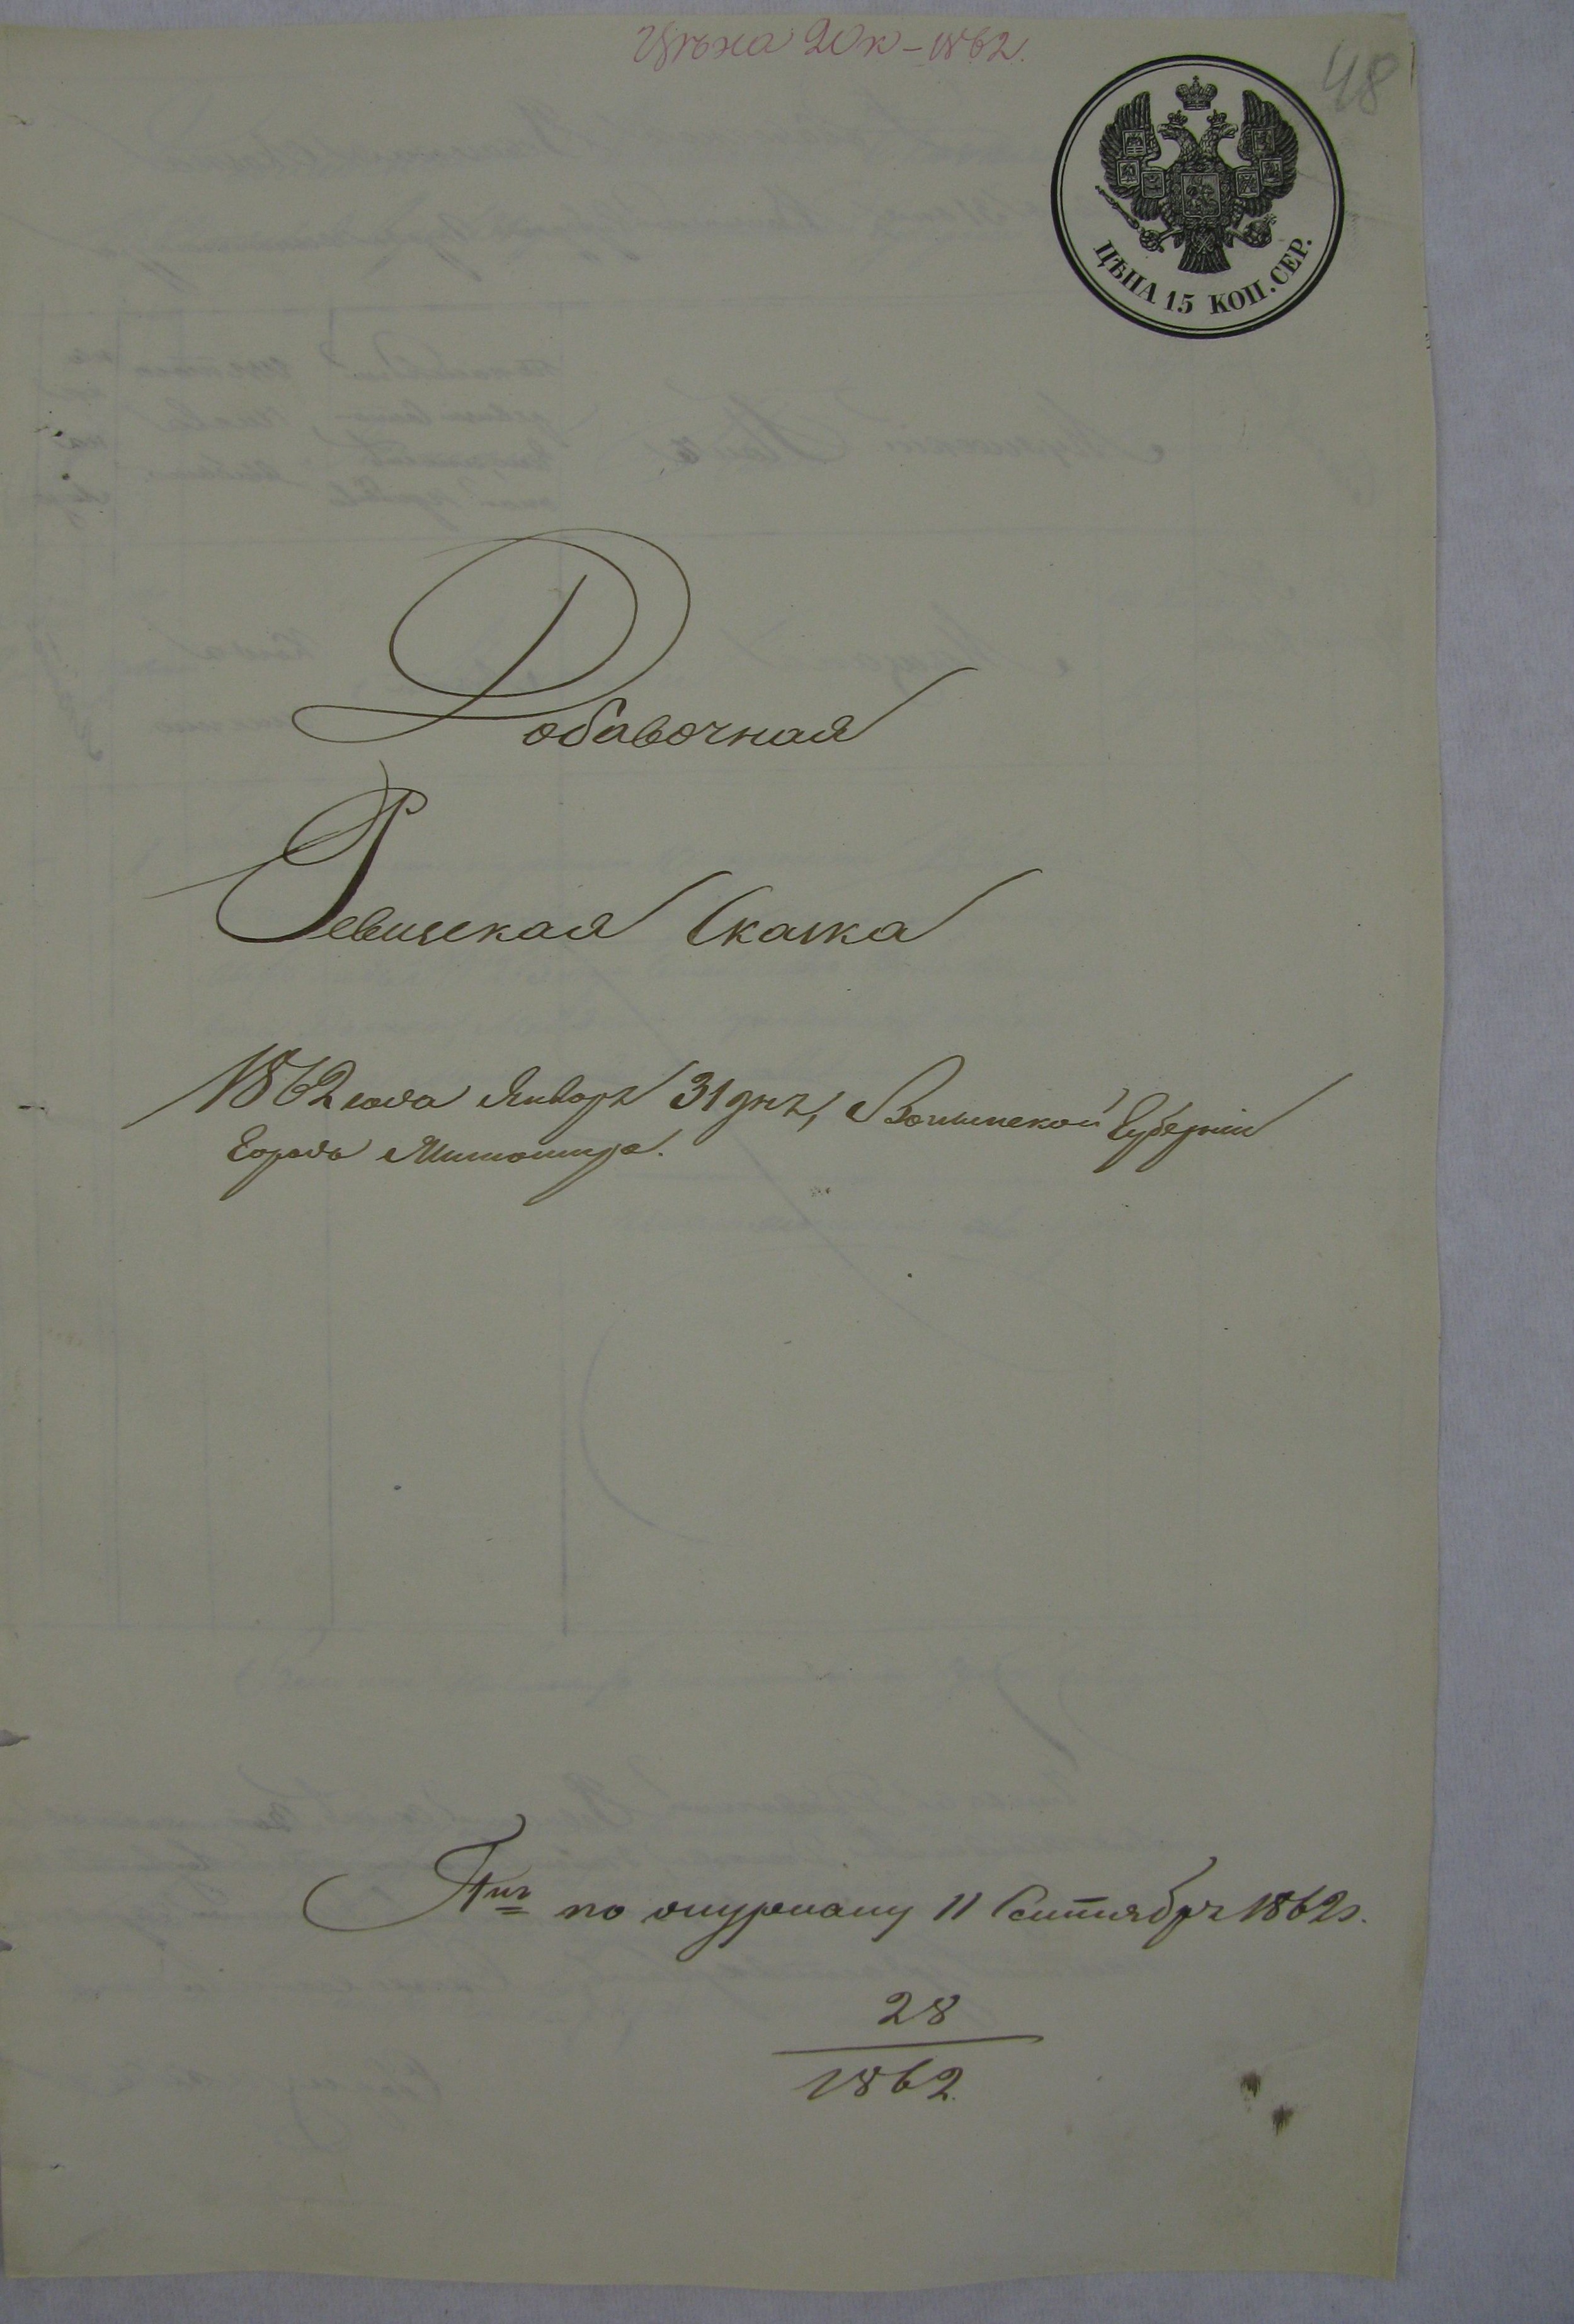 Цѣна 20 к – 1862.
48
ЦѢНА 15 КОП. СЕР.
Добавочная
Ревизская Сказка
1862 года Января 31 дня, Волынской Губерніи
Города Житомира.
по журналу 11 Сентября 1862 г.
28
1862